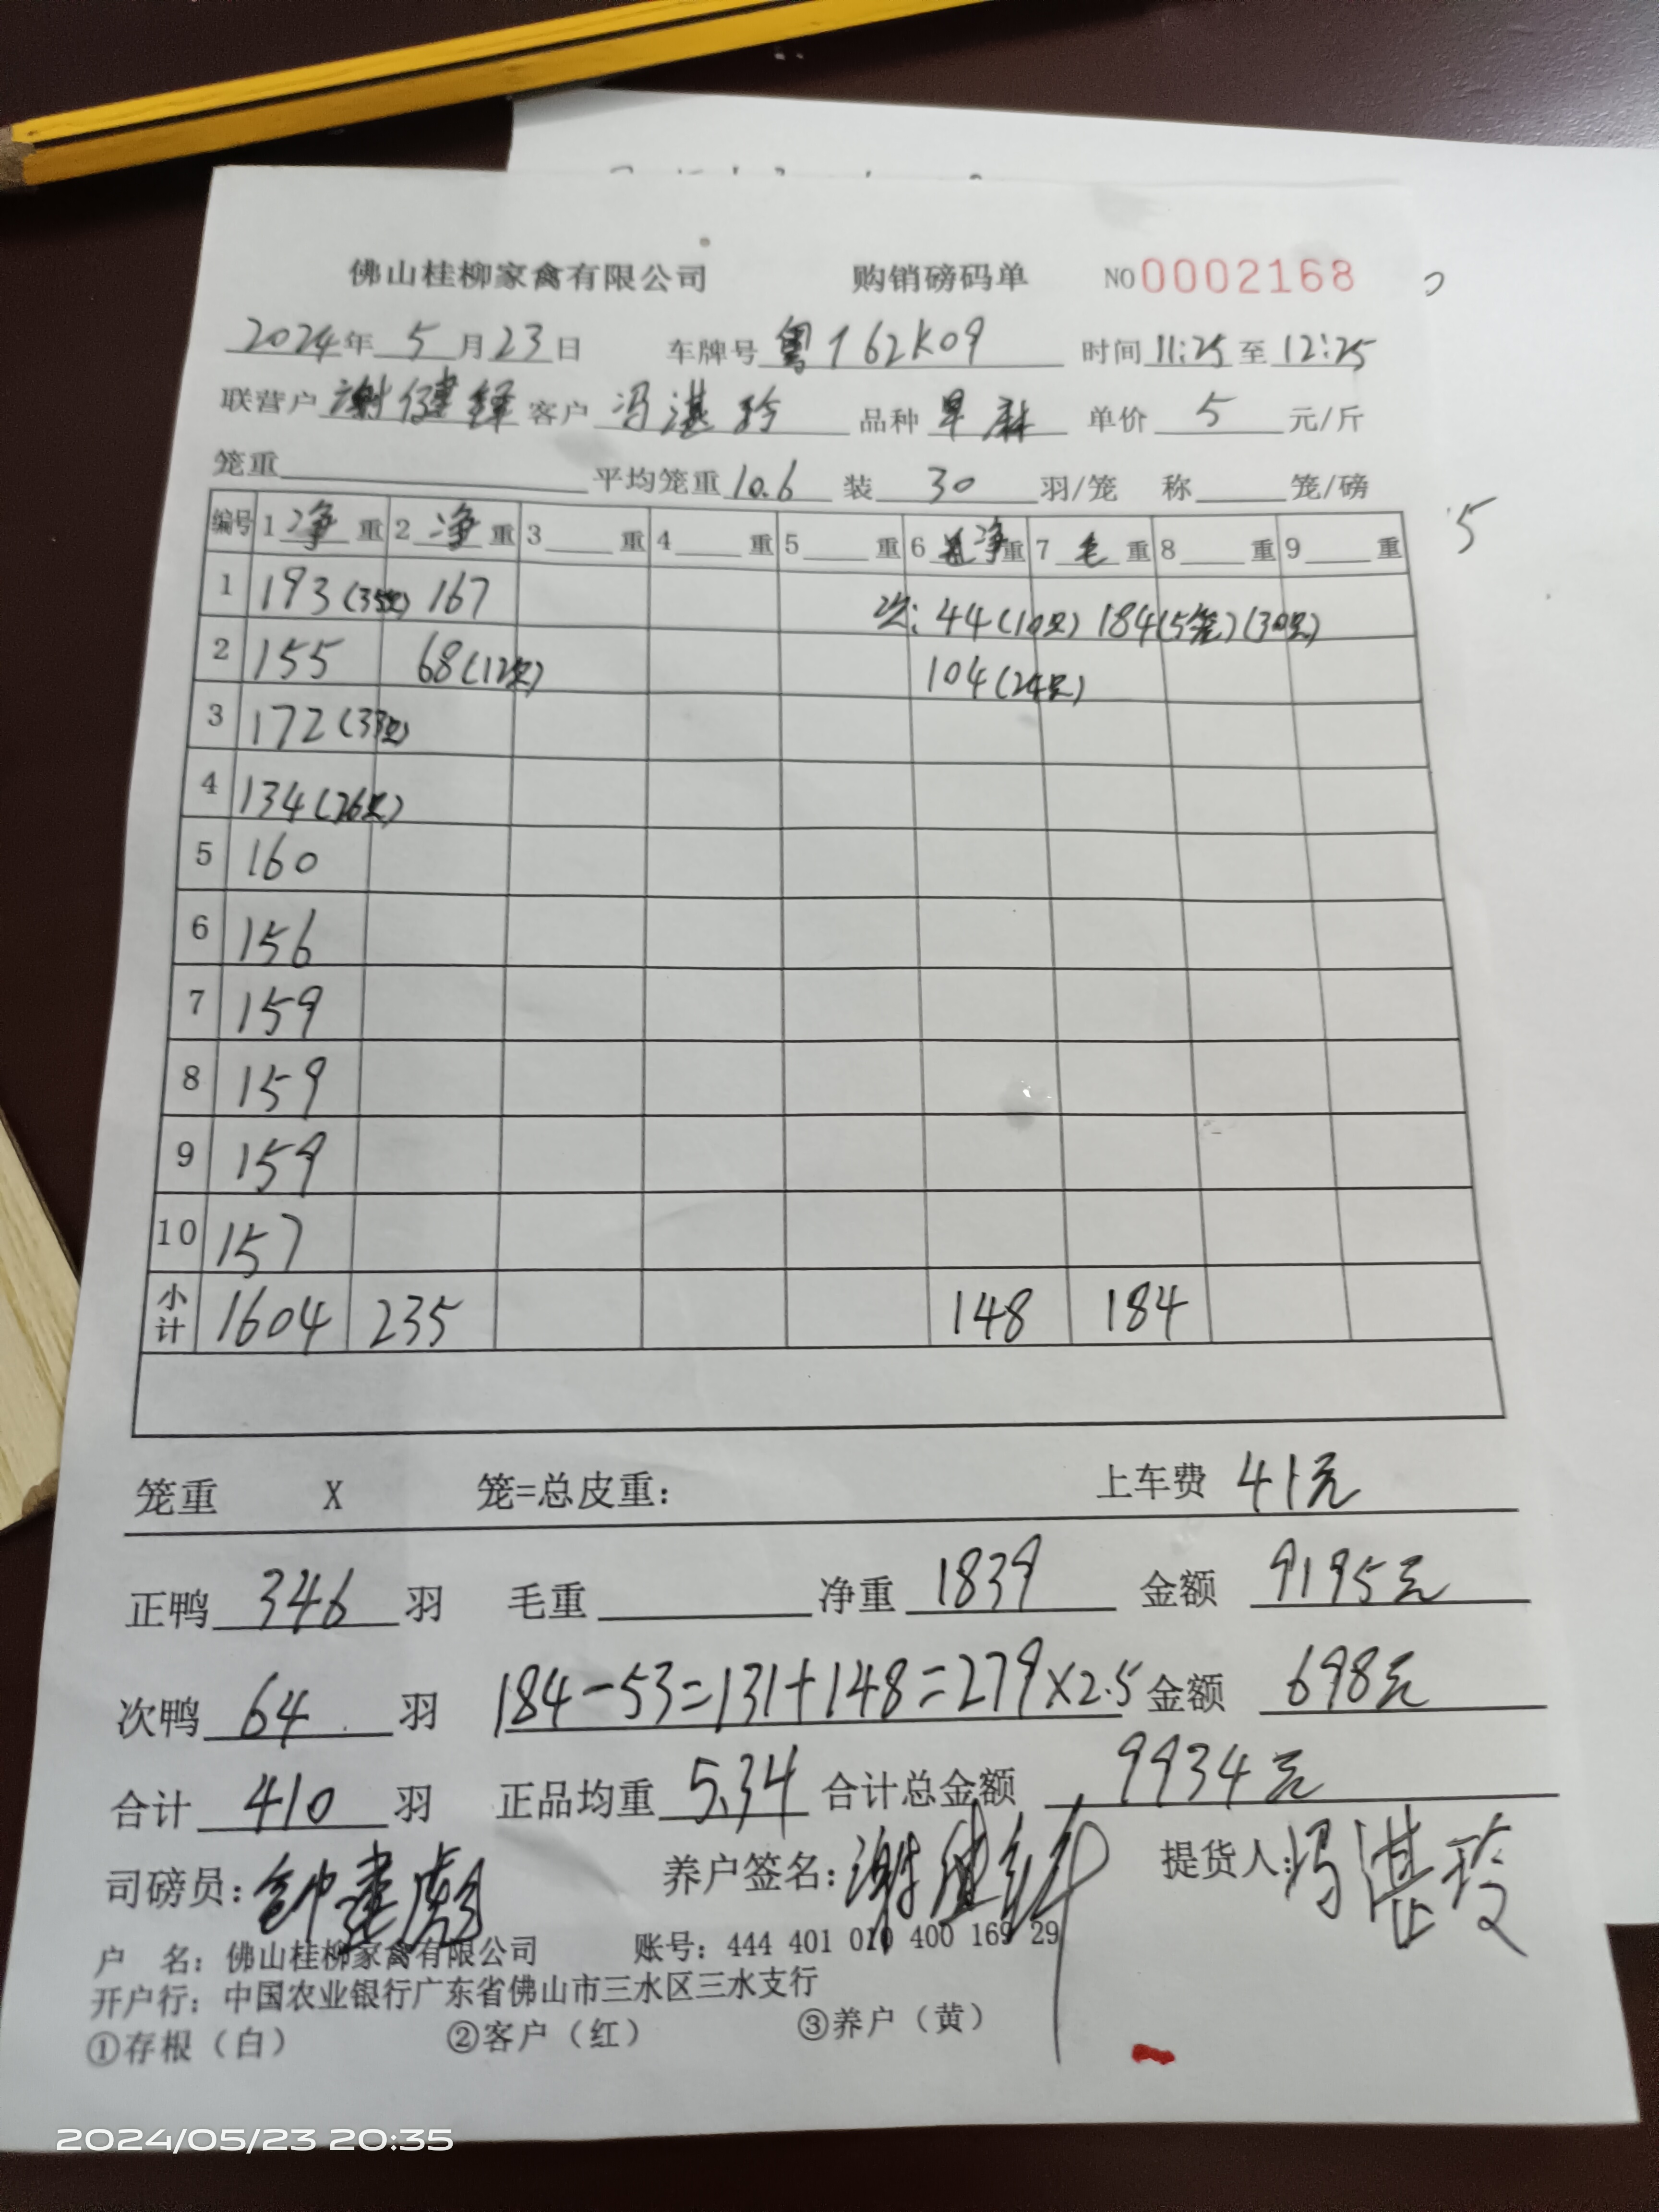 佛山桂柳家禽有限公司 购销磅码单 NO 0002168
2024年 5月23日 车牌号 粤162K09 时间 11:25 至 12:25
联营户 谢健锋 客户 冯湛玲 品种 早麻 单价 5 元/斤
笼重 平均笼重 10.6 装 30 羽/笼 称 笼/磅
5
编号 1 净 重 2 净 重 3 重 4 重 5 重 6 净 重 7 毛 重 8 重 9 重
1 193(35只) 167 次: 44(10只) 184(5笼)(30只)
2 155 68(12只) 104(24只)
3 172(33只)
4 134(26只)
5 160
6 156
7 159
8 159
9 159
10 157
小计 1604 235 148 184
笼重 X 笼=总皮重: 上车费 41元
正鸭 346 羽 毛重 净重 1839 金额 9195元
次鸭 64 羽 184-53=131+148=279×2.5 金额 698元
合计 410 羽 正品均重 5.34 合计总金额 9934元
司磅员: 钟建彪 养户签名: 谢健锋 提货人: 冯湛玲
户 名: 佛山桂柳家禽有限公司 账号: 444 401 010 400 169 29
开户行: 中国农业银行广东省佛山市三水区三水支行
①存根（白） ②客户（红） ③养户（黄）
2024/05/23 20:35